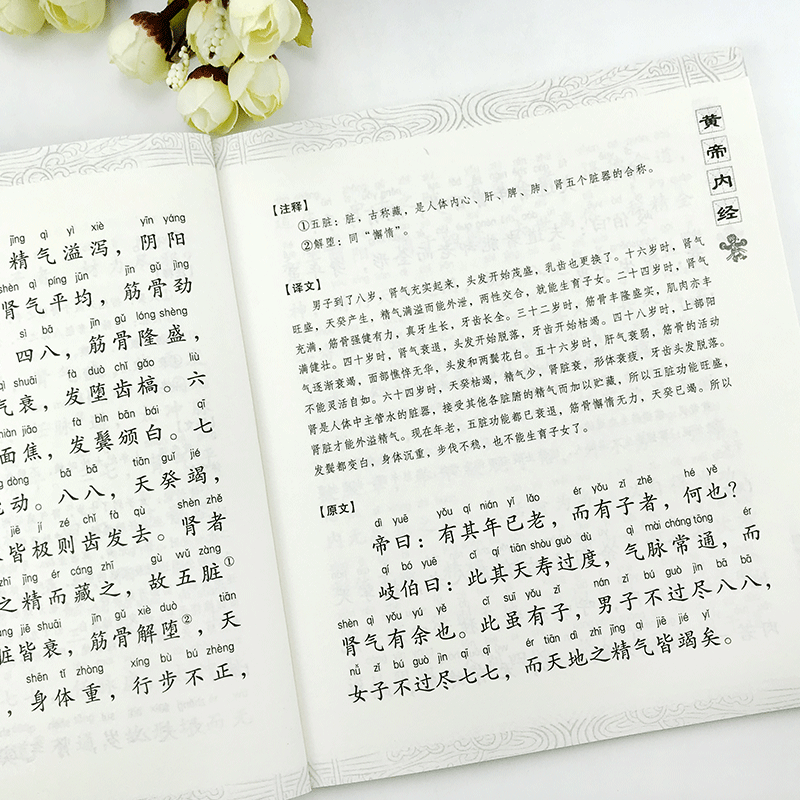 jīng qì yì xiè yīn yáng
精气溢泻，阴阳
shèn qì píng jūn jīn gǔ jìng
肾气平均，筋骨劲
sì bā jīn gǔ lóng shèng
四八，筋骨隆盛，
qì shuāi fà duò chǐ gǎo liù
气衰，发堕齿槁。六
miàn jiāo fà bìn bān bái qī
面焦，发鬓颁白。七
dòng bā bā tiān guǐ jié
动。八八，天癸竭，
jiē jí zé chǐ fà qù shèn zhě
皆极则齿发去。肾者
zhī jīng ér cáng zhī gù wǔ zàng
之精而藏之，故五脏①
zàng jiē shuāi jīn gǔ xiè duò tiān
脏皆衰，筋骨解堕②，天
shēn tǐ zhòng xíng bù bú zhèng
，身体重，行步不正，
黄帝内经
【注释】
①五脏：脏，古称藏，是人体内心、肝、脾、肺、肾五个脏器的合称。
②解堕：同“懈惰”。
【译文】
男子到了八岁，肾气充实起来，头发开始茂盛，乳齿也更换了。十六岁时，肾气
旺盛，天癸产生，精气满溢而能外泄，两性交合，就能生育子女。二十四岁时，肾气
充满，筋骨强健有力，真牙生长，牙齿长全。三十二岁时，筋骨丰隆盛实，肌肉亦丰
满健壮。四十岁时，肾气衰退，头发开始脱落，牙齿开始枯竭。四十八岁时，上部阳
气逐渐衰竭，面部憔悴无华，头发和两鬓花白。五十六岁时，肝气衰弱，筋骨的活动
不能灵活自如。六十四岁时，天癸枯竭，精气少，肾脏衰，形体衰疲，牙齿头发脱落。
肾是人体中主管水的脏器，接受其他各脏腑的精气而加以贮藏，所以五脏功能旺盛，
肾脏才能外溢精气。现在年老，五脏功能都已衰退，筋骨懈惰无力，天癸已竭。所以
发鬓都变白，身体沉重，步伐不稳，也不能生育子女了。
【原文】
dì yuē yǒu qí nián yǐ lǎo ér yǒu zǐ zhě hé yě
帝曰：有其年已老，而有子者，何也？
qí bó yuē cǐ qí tiān shòu guò dù qì mài cháng tōng ér
岐伯曰：此其天寿过度，气脉常通，而
shèn qì yǒu yú yě cǐ suī yǒu zǐ nán zǐ bú guò jìn bā bā
肾气有余也。此虽有子，男子不过尽八八，
nǚ zǐ bú guò jìn qī qī ér tiān dì zhī jīng qì jiē jié yǐ
女子不过尽七七，而天地之精气皆竭矣。